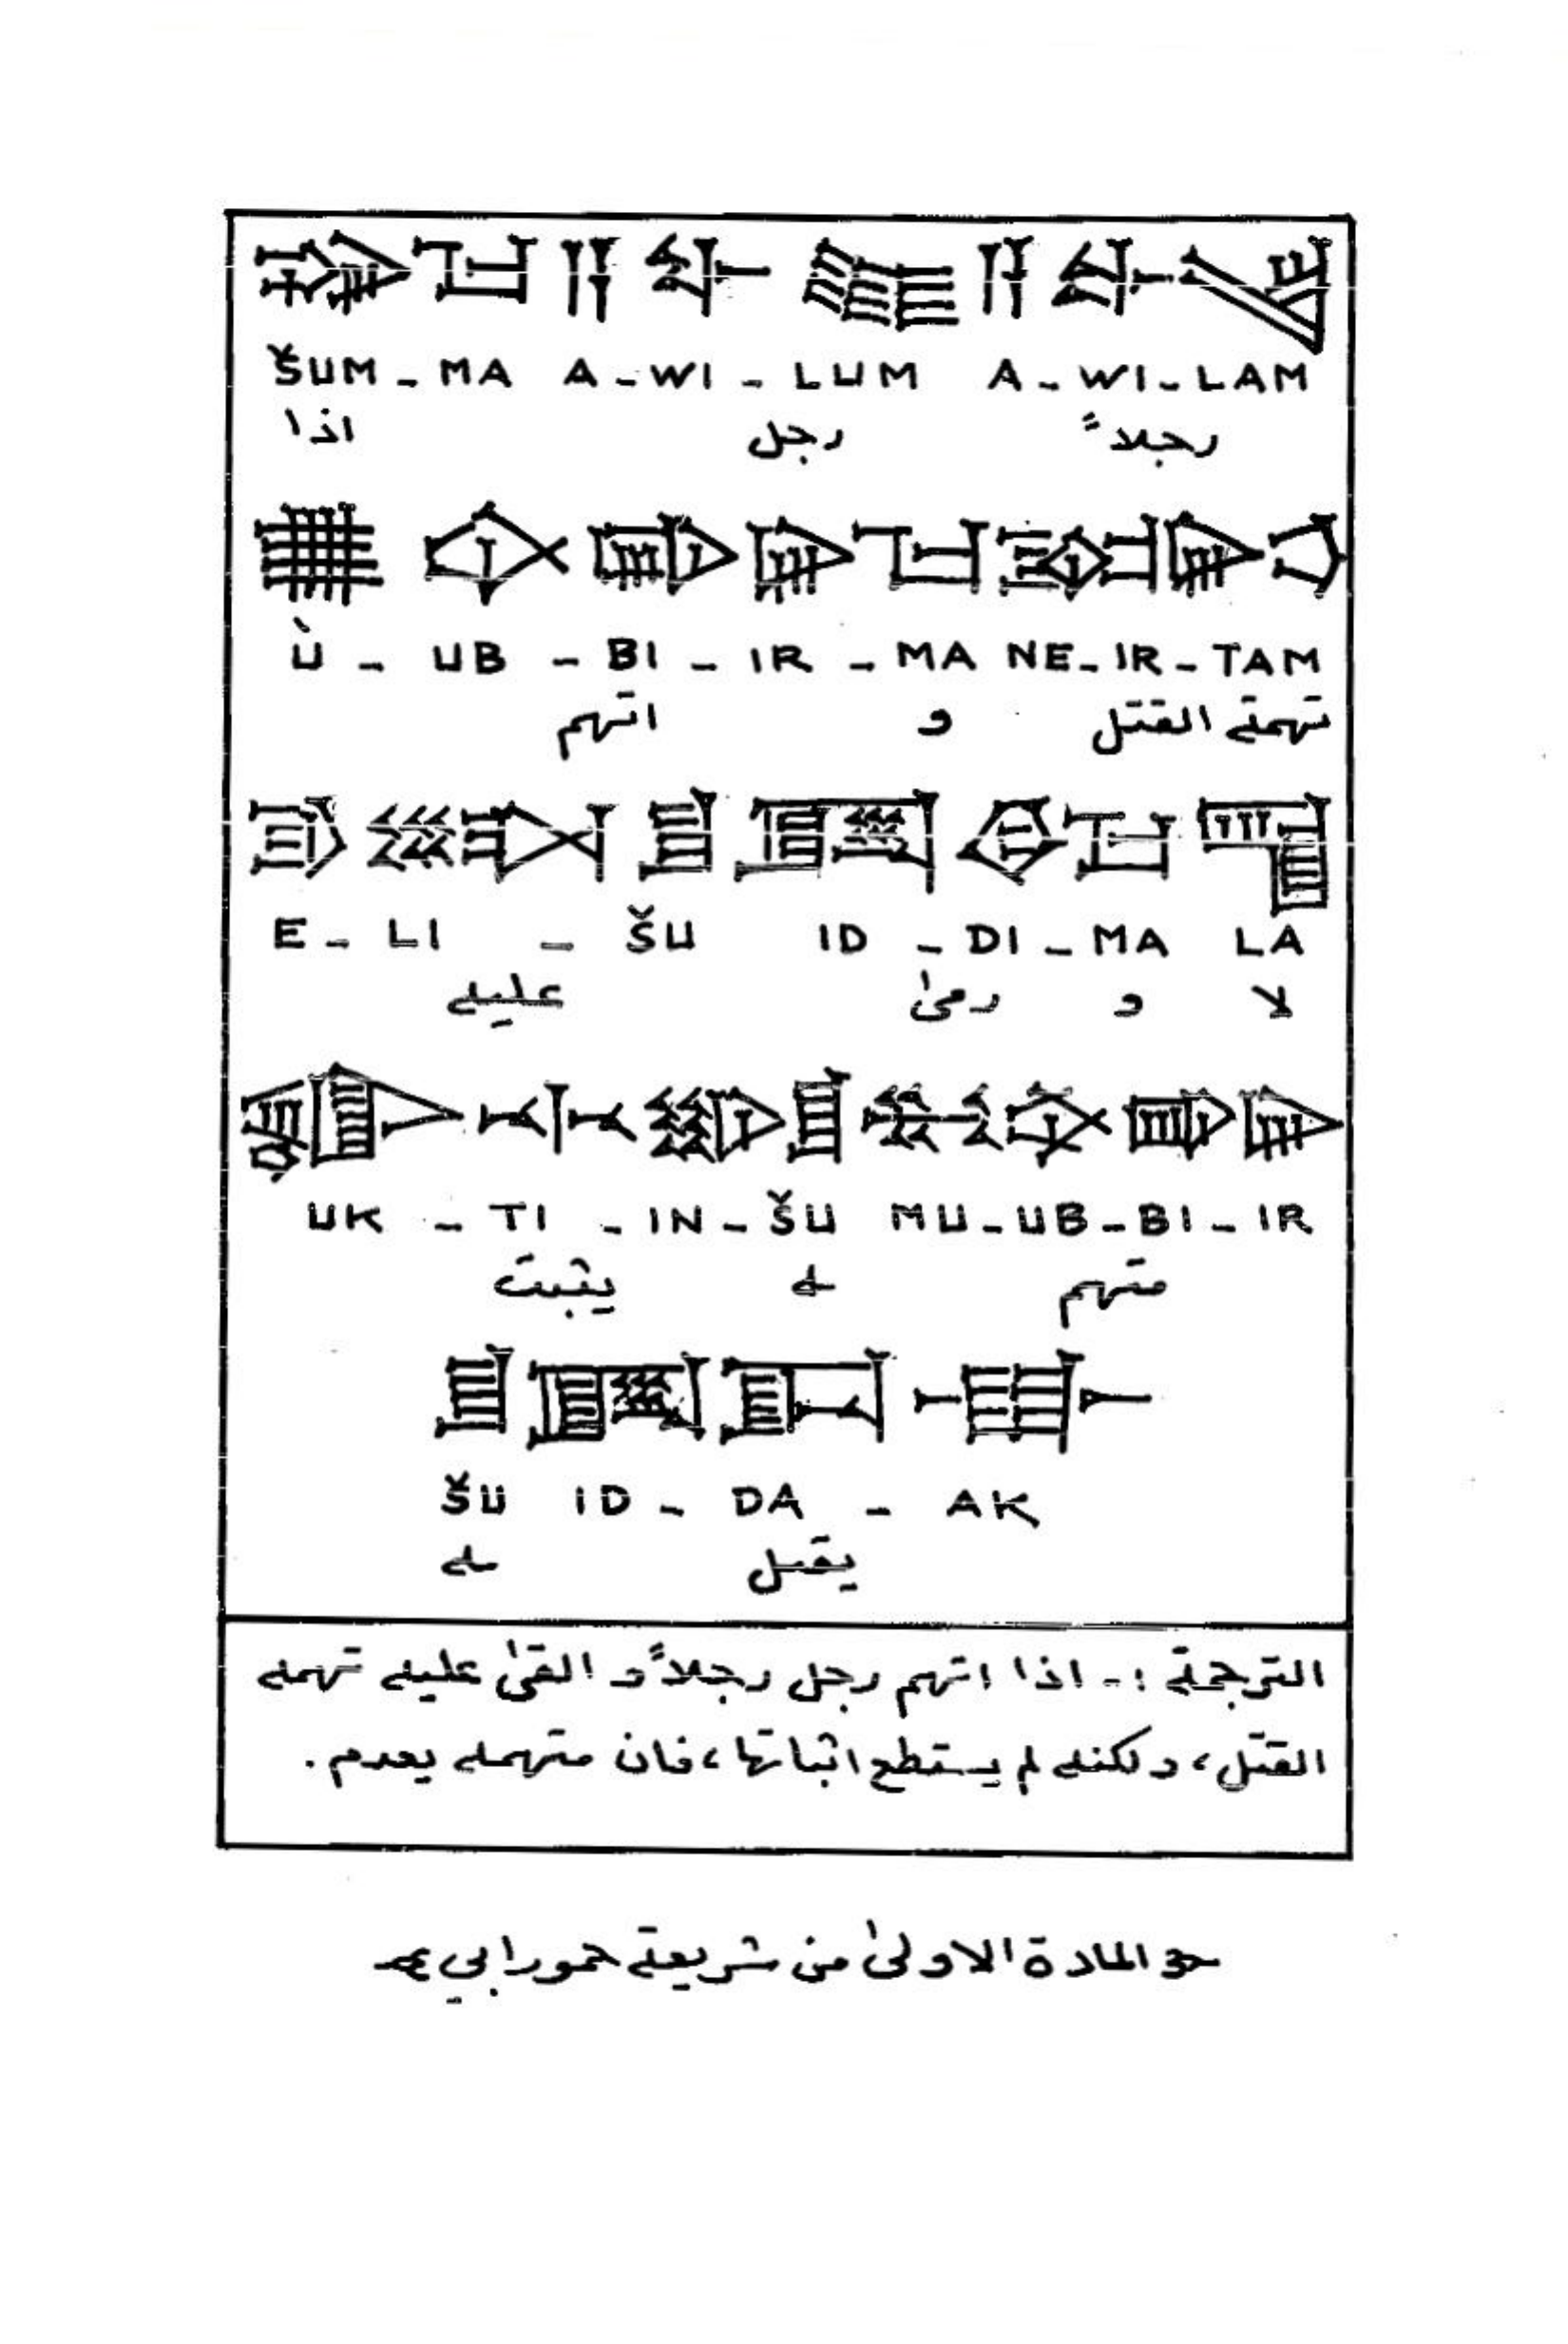 ŠUM - MA A - WI - LUM A - WI - LAM
اذا رجل رجلاً
Ù - UB - BI - IR - MA NE - IR - TAM
اتهم و تهمة القتل
E - LI - ŠU ID - DI - MA LA
عليه رمىٰ و لا
UK - TI - IN - ŠU MU - UB - BI - IR
يثبت ه متهم
ŠU ID - DA - AK
ه يقتل
الترجمة :- اذا اتهم رجل رجلاً و القىٰ عليه تهمه
القتل، ولكنه لم يستطع اثباتها، فان متهمه يعدم.
المادة الاولىٰ من شريعة حمورابي